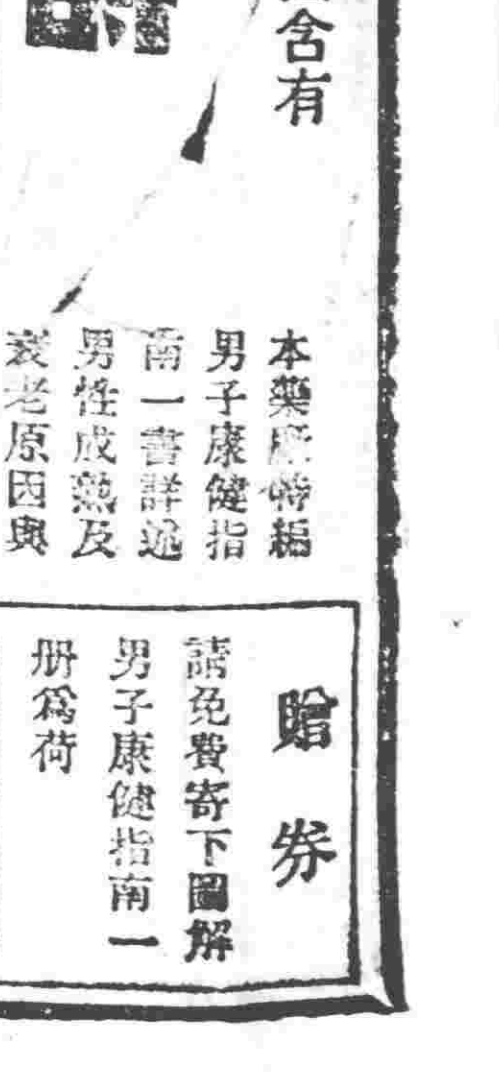 含有
本藥廠特編
男子康健指
南一書詳述
男性成熟及
衰老原因與
贈券
請免費寄下圖解
男子康健指南一
册爲荷